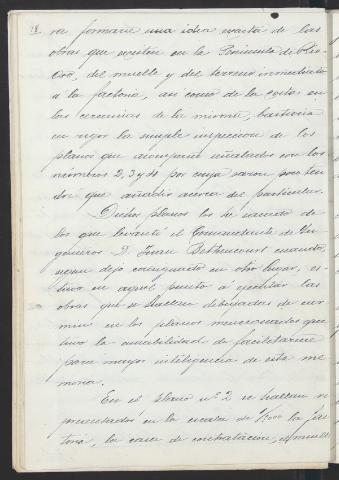 18.
ra formarse una idea exacta de las
obras que existen en la Península de Río
Oro, del muelle y del terreno inmediato
a la factoria, asi como de la costa en
las cercanias de la misma, bastaria
en rigor la simple inspeccion de los
planos que acompaño señalados con los
números 2, 3 y 4 por cuya razon poco ten-
dré que añadir acerca del particular.
Dichos planos los he sacado de
los que levantó el Comandante de In-
genieros D. Juan Bethencourt cuando,
segun dejo consignado en otro lugar, es-
tuvo en aquel punto á ejecutar las
obras que se hallan dibujadas de car-
min en los planos mencionados que
tuvo la amabilidad de facilitarme
para mayor inteligencia de esta me-
moria.
En el plano nº 2 se hallan re
presentados en la escala de la fac-
toria, la casa de contratacion, el muelle